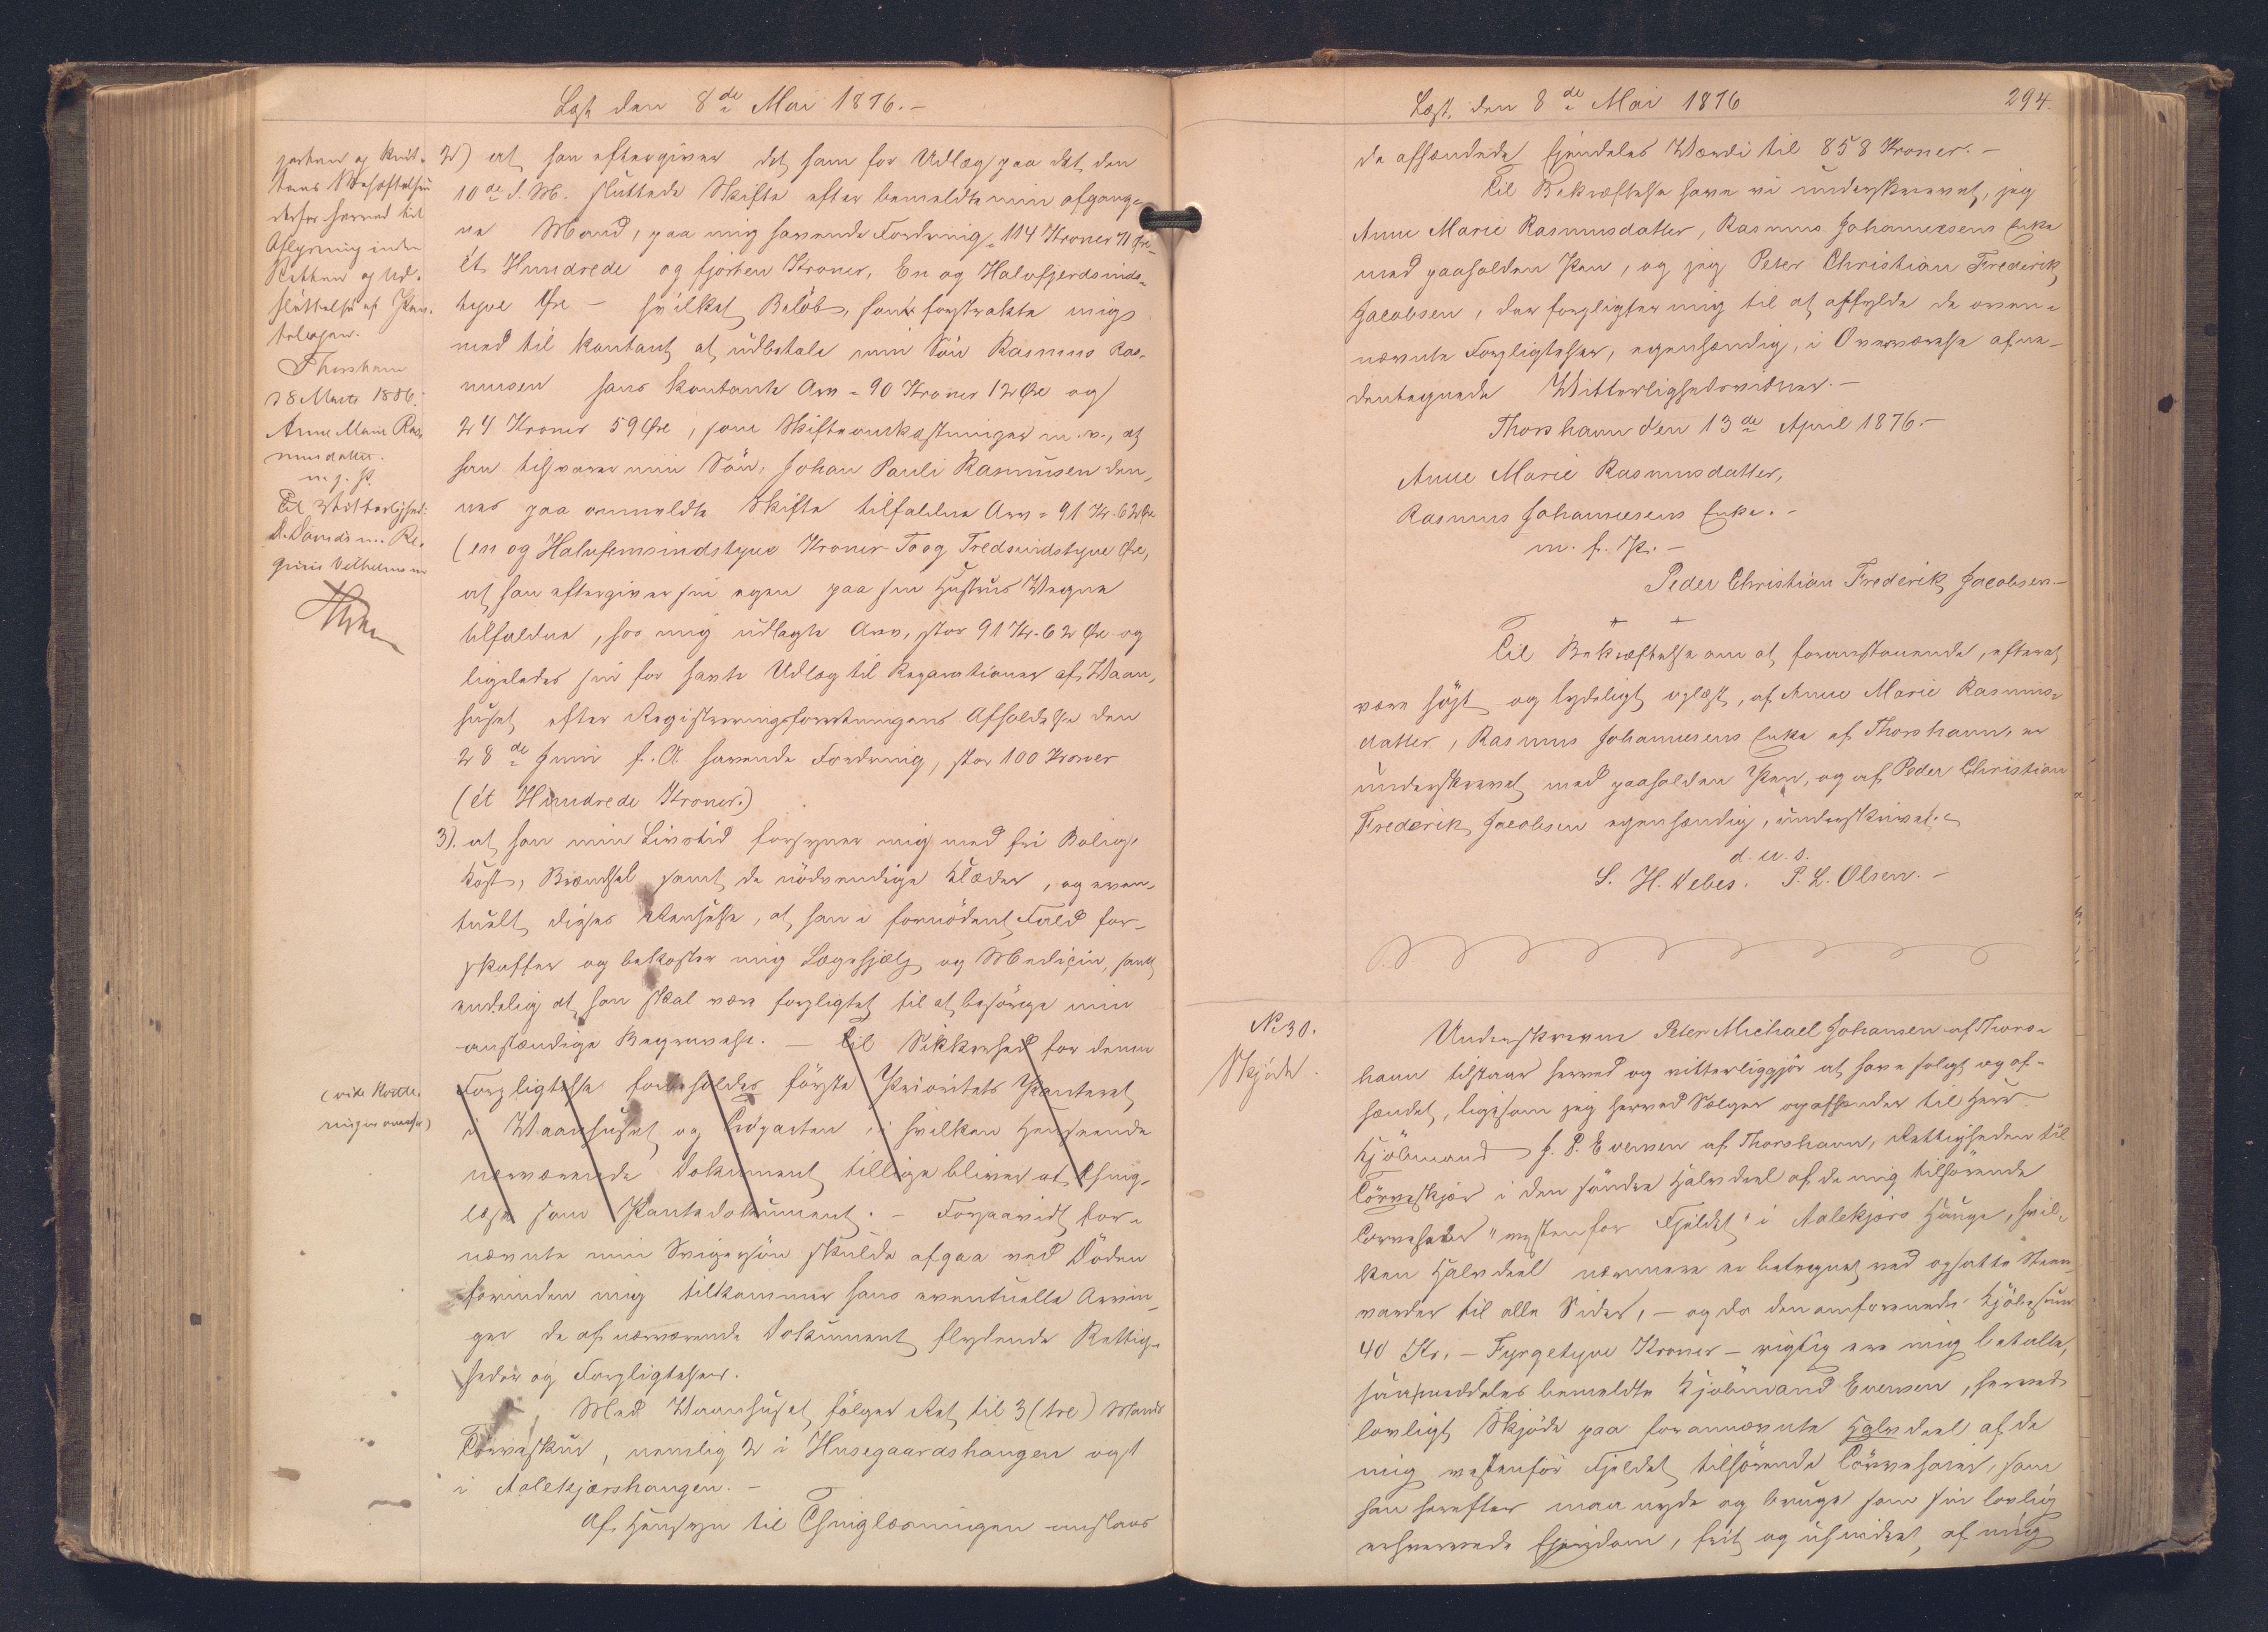 Læst den 8de Mai 1876.-
parten og Kvit-
Behæftelsen
derfor herved til
Aflysning inden
Retten og Ud-
slettelse af Pan-
tebogen.
Thorshavn
28 Marts 1886.
Anne Marie Ras-
musdatter.
m. f. P.
Til Vitterlighed:
D. Danids
Vilhelm
2) at han eftergiver det ham for Udlæg paa det den
10de d. M. sluttede Skifte efter bemeldte min afgang-
ne Mand, paa mig havende Fordring = 114 Kroner 71 Øre -
ét Hundrede og fjorten Kroner, En og Halvfjerdsinds-
tyve Øre - hvilket Beløb, han forstrakte mig
med til kontant at udbetale min Søn Rasmus Ras-
musen hans kontante Arv = 90 Kroner 12 Øre og
24 Kroner 59 Øre, som Skifteomkostninger m. v., at
han tilsvarer min Søn, Johan Pauli Rasmusen den-
nes paa ommeldte Skifte tilfaldne Arv = 91 Kr. 62 Øre
(en og Halvfemsindstyve Kroner To og Tredsindstyve Øre,
at han eftergiver sin egen paa sin Hustrus Vegne
tilfaldne, hos mig udlagte Arv, stor 91 Kr. 62 Øre og
ligeledes sin for havte Udlæg til Reparationer af Vaan-
huset, efter Registreringsforretningens Afholdelse den
28de Juni f. A. havende Fordring, stor 100 Kroner
(ét Hundrede Kroner.)
3). at han min Livstid forsyner mig med fri Bolig,
Kost, Brændsel samt de nödvendige Klæder, og even-
tuelt disses Renhold, at han i fornödent Fald for-
skaffer og bekoster mig Lægehjælp og Medicin, samt
endelig at han skal være forpligtet til at besörge min
anstændige Begravelse. - Til Sikkerhed for denne
(vide Kvitte-
ringen ovenfor)
Forpligtelse forbeholdes förste Prioritets Panteret
i Vaanhuset og Parten, i hvilken Henseende
nærværende Dokument tillige bliver at thing-
læse som Pantedokument. - Forsaavidt for-
nævnte min Svigersön skulde afgaa ved Döden
forinden mig tilkommer hans eventuelle Arvin-
ger de af nærværende Dokument flydende Rettig-
heder og Forpligtelser.
Med Vaanhuset fölger Ret til 3 (tre) Mands
Törveskur, nemlig 2 i Husegaardshaugen og 1
i Aalekjærshaugen. -
Af Hensyn til Thinglæsningen anslaaes
Læst, den 8de Mai 1876
294.
de afhændede Ejendeles Værdi til 858 Kroner. -
Til Bekræftelse have vi underskrevet, jeg
Anne Marie Rasmusdatter, Rasmus Johannesens Enke
med paaholden Pen, og jeg Peter Christian Frederik
Jacobsen, der forpligter mig til at opfylde de oven-
nævnte Forpligtelser, egenhændig, i Overværelse af ne-
dentegnede Vitterlighedsvidner. -
Thorshavn den 13de April 1876. -
Anne Marie Rasmusdatter,
Rasmus Johannesens Enke. -
m. f. P. -
Peder Christian Frederik Jacobsen -
Til Bekræftelse om at foranstaaende, efterat
være höjt og tydeligt oplæst, af Anne Marie Rasmus-
datter, Rasmus Johannesens Enke af Thorshavn, er
underskrevet med paaholden Pen, og af Peder Christian
Frederik Jacobsen egenhændig, underskrivet. -
d. u. s.
S. H. Weber. P. L. Olsen. -
No 30.
Skjöde.
Underskrevne Peter Michael Johansen af Thors-
havn tilstaar herved og vitterliggjör at have solgt og af-
hændet, ligesom jeg herved Sælger og afhænder til Herr
Kjöbmand J. P. Evensen af Thorshavn, Rettigheden til
Törveskjær i den söndre Halvdeel af de mig tilhörende
Törvehaver "vestenfor Fjeldet" i Aalekjærs Hauge, hvil-
ken Halvdeel nærmere er betegnet ved opsatte Steen-
varder til alle Sider, - og da den omforenede Kjöbesum
40 Kr. - Fyrgetyve Kroner - rigtig ere mig betalte,
saa meddeles bemeldte Kjöbmand Evensen, herved
lovligt Skjöde paa forannævnte Halvdeel af de
mig vestenfor Fjeldet tilhörende Törvehaver, som
han herefter maa nyde og bruge som sin lovlig
erhvervede Ejendom, frit og uhindret, af mig